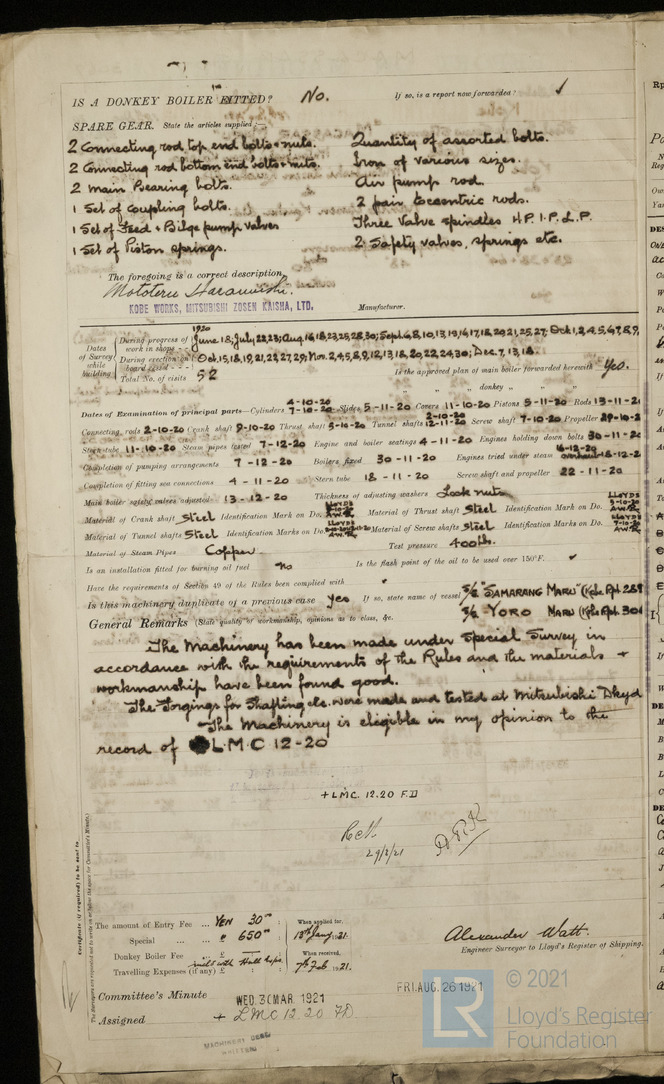 IS A DONKEY BOILER FITTED? No. If so, is a report now forwarded? ✓
SPARE GEAR. State the articles supplied:—
2 Connecting rod top end bolts & nuts. Quantity of assorted bolts.
2 Connecting rod bottom end bolts & nuts. Iron of various sizes.
2 Main Bearing bolts. Air pump rod.
1 Set of Coupling bolts. 2 pair Eccentric rods.
1 Set of Feed & Bilge pump valves Three Valve spindles H.P. I.P. L.P.
1 Set of Piston springs. 2 Safety valves, springs etc.
The foregoing is a correct description,
KOBE WORKS, MITSUBISHI ZOSEN KAISHA, LTD. Manufacturer.
1920
Dates of Survey while building
During progress of work in shops - - June 18, July 22,23; Aug 16,18,23,25,28,30; Sept. 6,8,10,13,15,16,17,18,20,21,25,27; Oct 1,2,4,5,6,7,8,9,
During erection on board vessel - - - Oct. 15,18,19,21,22,27,29; Nov. 2,4,5,8,9,12,13,18,20,22,24,30; Dec. 7,13,18.
Total No. of visits 52 Is the approved plan of main boiler forwarded herewith Yes.
" " " donkey " " "
Dates of Examination of principal parts—Cylinders 4-10-20 7-10-20 Slides 5-11-20 Covers 11-10-20 Pistons 5-11-20 Rods
Connecting rods 2-10-20 Crank shaft 9-10-20 Thrust shaft 5-10-20 Tunnel shafts 2-10-20 12-11-20 Screw shaft 7-10-20 Propeller
Stern tube 11-10-20 Steam pipes tested 7-12-20 Engine and boiler seatings 4-11-20 Engines holding down bolts 30-11-20
Completion of pumping arrangements 7-12-20 Boilers fixed 30-11-20 Engines tried under steam 16-12-20
Completion of fitting sea connections 4-11-20 Stern tube 18-11-20 Screw shaft and propeller 22-11-20
Main boiler safety valves adjusted 13-12-20 Thickness of adjusting washers Lock nuts
Material of Crank shaft Steel Identification Mark on Do. LLOYDS A.W. Material of Thrust shaft Steel Identification Mark on Do. LLOYDS 5-10-20 A.W.
Material of Tunnel shafts Steel Identification Marks on Do. LLOYDS A.W. Material of Screw shafts Steel Identification Marks on Do. LLOYDS 7-10-20 A.W.
Material of Steam Pipes Copper Test pressure 400 lbs.
Is an installation fitted for burning oil fuel no Is the flash point of the oil to be used over 150°F. ✓
Have the requirements of Section 49 of the Rules been complied with
Is this machinery duplicate of a previous case yes If so, state name of vessel S/S "SAMARANG MARU" (Kobe Rpt.
S/S YORO MARU (Kobe Rpt.
General Remarks (State quality of workmanship, opinions as to class, &c.
The Machinery has been made under Special Survey in
accordance with the requirements of the Rules and the materials &
workmanship have been found good.
The Forgings for Shafting etc. were made and tested at Mitsubishi Dkyd
The Machinery is eligible in my opinion to the
record of L.M.C 12-20
+ LMC. 12.20 F.D
Certificate (if required) to be sent to
The amount of Entry Fee ... YEN 30.00 : When applied for,
Special ... ... " 650.00 : 13th Jany 1921.
Donkey Boiler Fee ... £ : When received,
Travelling Expenses (if any) £ : 7th Feb 1921.
Alexander Watt.
Engineer Surveyor to Lloyd's Register of Shipping.
Committee's Minute WED. 30 MAR. 1921 FRI. AUG. 26 1921
Assigned + LMC 12.20 FD
MACHINERY CERT. WRITTEN
LR © 2021
Lloyd's Register
Foundation